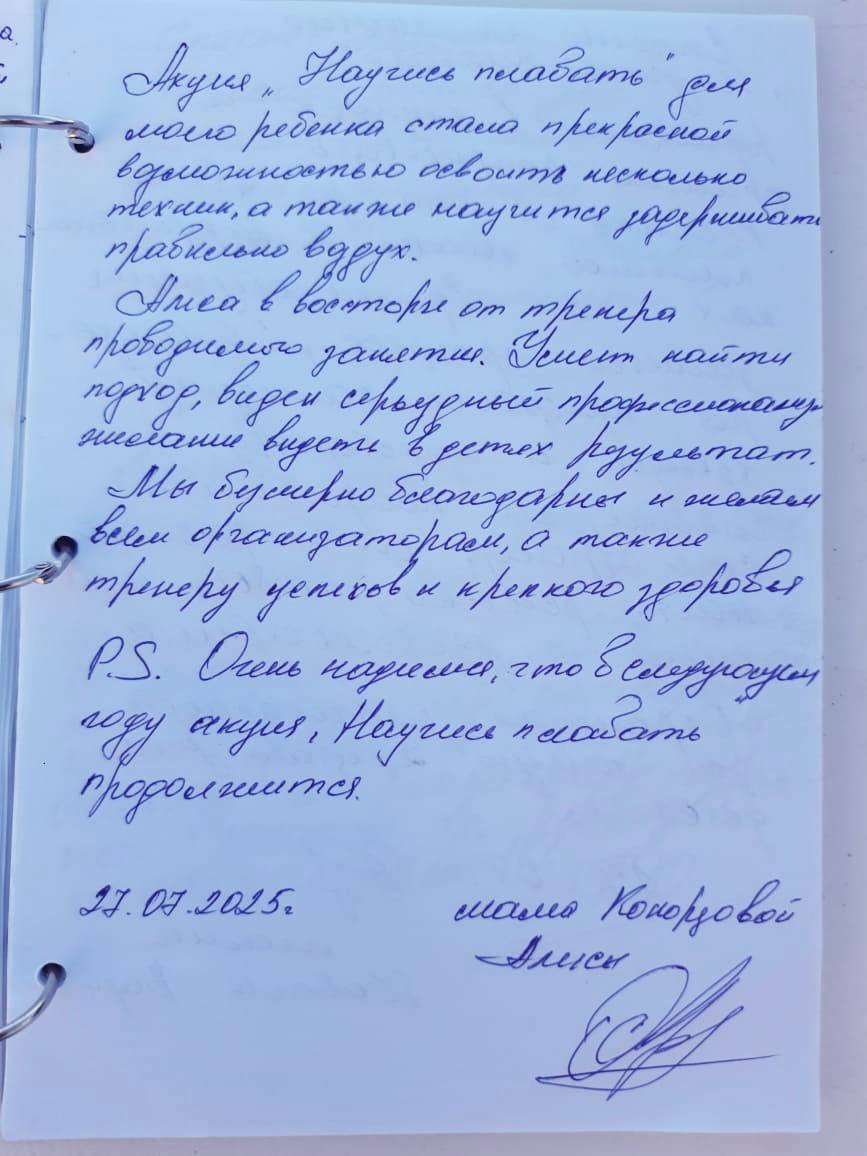 а.
Акция „Научись плавать" для
моего ребенка стала прекрасной
возможностью освоить несколько
техник, а также научится задерживать
правильно воздух.
Алиса в восторге от тренера
проводимого занятия. Умеет найти
подход, виден серьезный профессионализм
желание видеть в детях результат.
Мы безмерно благодарны и желаем
всем организаторам, а также
тренеру успехов и крепкого здоровья
P.S. Очень надеимся, что в следующем
году акция „Научись плавать"
продолжится.
27.07.2025г
мама
Алисы